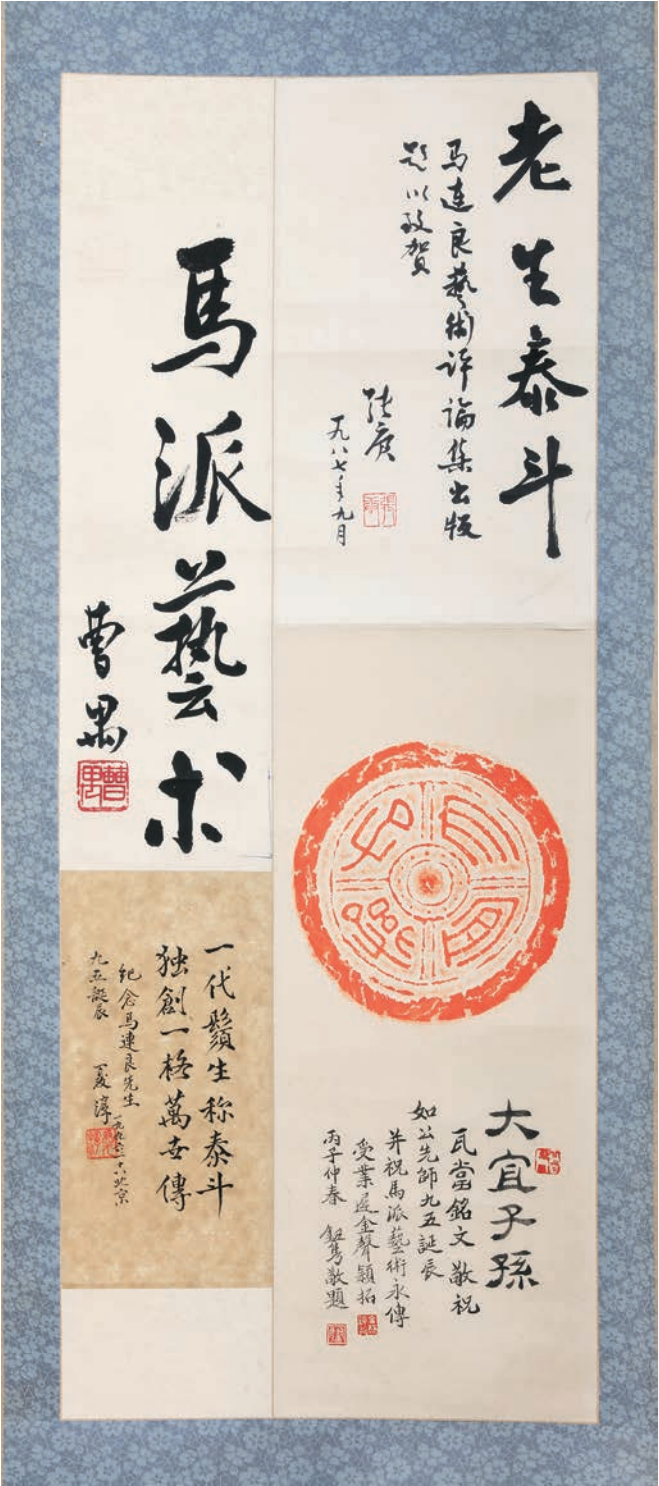 老生泰斗
马连良藝術评論集出版
题以致贺
张庚
一九八七年九月
馬派藝术
曹禺
大宜子孫
大宜子孫
瓦當銘文敬祝
如公先師九五誕辰
并祝馬派藝術永傳
受業遲金聲穎拓
丙子仲春 鈕雋敬題
一代鬚生称泰斗
独創一格萬世傳
纪念馬連良先生
九五誕辰